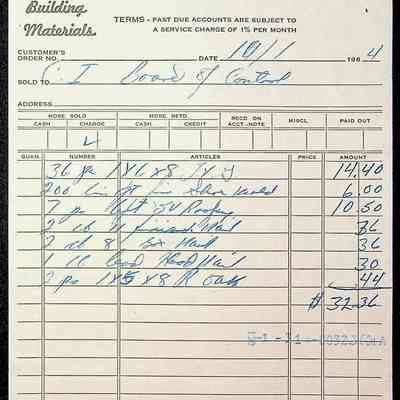 Building
Materials
TERMS - PAST DUE ACCOUNTS ARE SUBJECT TO
A SERVICE CHARGE OF 1% PER MONTH
CUSTOMER'S
ORDER NO. DATE 10/1 1964
SOLD TO C. I Board of Control
ADDRESS
MDSE. SOLD MDSE. RETD. RECD ON MISCL PAID OUT
CASH CHARGE CASH CREDIT ACCT.-NOTE
QUAN. NUMBER ARTICLES PRICE AMOUNT
36 pc 1x6x8 14.40
200 lin ft Mold 6.00
7 Roofing 10.50
2 lb Nail 36
2 lb 8 Box Nail 36
1 lb Lead Head Nail 30
2 pc 1x5x8 .44
$ 32.36